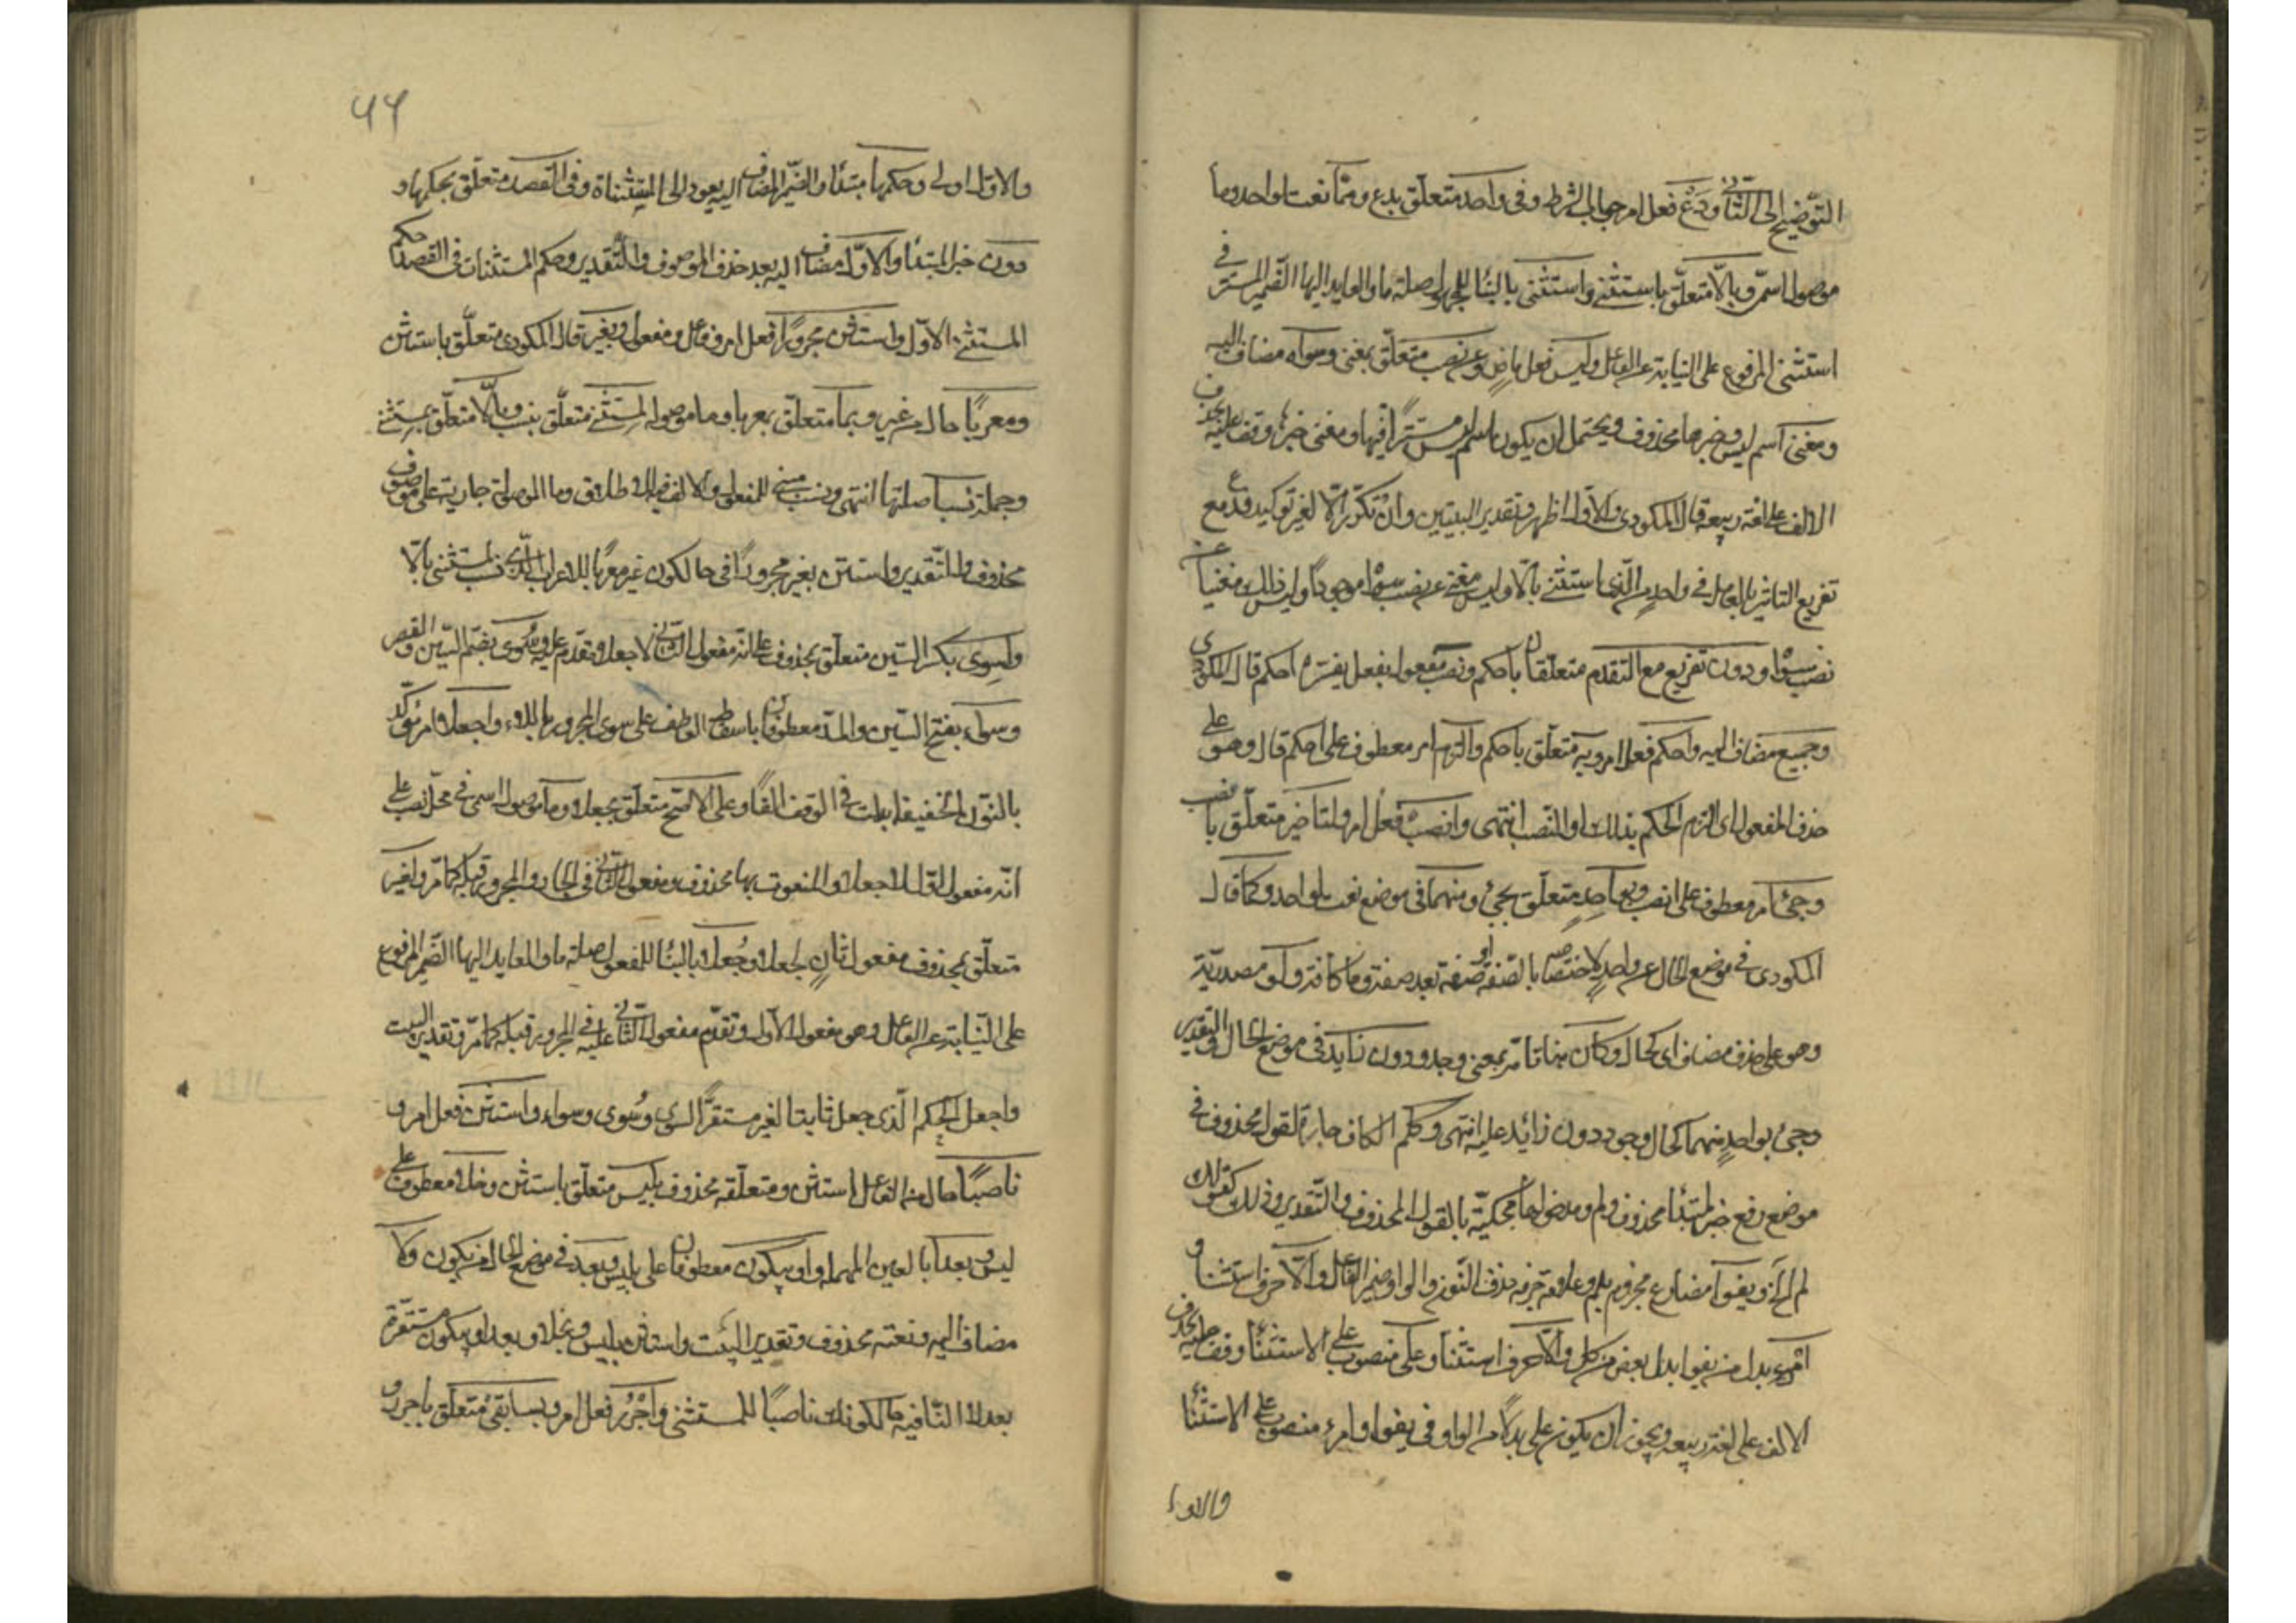 التوضيح الى الثاني ودع فعل امر جواب الشرط وفى واحد متعلق بدع ومما نعت لواحد وما
موصول اسمى وبالا متعلق باستثنى واستثنى بالبناء للمجهول صلة ما والعايد اليها الضمير المستتر فى
استثنى المرفوع على النيابة عن الفاعل وليس فعل ماض وعن نصب متعلق بمغنى وسواه مضاف اليه
ومغنى اسم ليس وخبرها محذوف ويحتمل ان يكون اسم ليس مستترا فيها ومغنى خبر وقف عليه بحذف
الالف على لغة ربيعة قال المكودى والاول اظهر وتقدير البيتين وان تكرر الا لغير توكيد فدع مع
تفريغ التاثير بالعامل فى واحد من الذى استثنى بالا وليس مغنى عن نصب سواه موجودا وليس ذلك مغنيا عن
نصب سواه ودون تفريغ مع التقدم متعلقان باحكم ونصب مفعول بفعل يفسره احكم قال المكودى
وجميع مضاف اليه واحكم فعل امر وبه متعلق باحكم والتزم امر معطوف على احكم قال وهو على
حذف المفعول اى التزم الحكم بذلك او النصب انتهى وانصب فعل امر ولتاخير متعلق بانصب
وجئ امر معطوف على انصب وبواحد متعلق بجئ ومنهما فى موضع نعت لواحد وكما قال
المكودى فى موضع الحال من واحد لاختصاصه بالصفة او صفة بعد صفة وما كافة ولو مصدرية
وهو على حذف مضاف اى كحال وكان هنا تامة بمعنى وجد ودون زايد فى موضع الحال والتقدير
وجئ بواحد منهما كحال وجود دون زائد عليه انتهى وكلم الكاف جارة لقول محذوف فى
موضع رفع خبر لمبتدأ محذوف ولم ومدخولها محكية بالقول المحذوف والتقدير وذلك كقولك
لم الخ ويفوا مضارع مجزوم بلم وعلامة جزمه حذف النون والواو ضمير الفاعل والا حرف استثنا و
امرؤ بدل من يفوا بدل بعض من كل والا حرف استثنا وعلى منصوب على الاستثنا وقف عليه بحذف
الالف على لغة ربيعة ويجوز ان يكون على بدلا من الواو فى يفوا وامرء منصوب على الاستثنا
والاول
والاول اولى وحكمها مبتدأ والضمير المضاف اليه يعود الى المستثناة وفى القصد متعلق بحكمها و
دون خبر المبتدأ والاول مضاف اليه بعد حذف الموصوف والتقدير وحكم المستثنات فى القصد حكم
المستثنى الاول واستثن مجرورا فعل امر وفاعل ومفعول وبغير قال المكودى متعلق باستثن
ومعربا حال من غير وبما متعلق بمعربا وما موصولة لمستثنى متعلق بنسب وبالا متعلق بمستثنى
وجملة نسبا صلتها انتهى ونسب مبنى للمفعول والالف للاطلاق وما الموصولة جارية على موصوف
محذوف والتقدير واستثن بغير مجرورا فى حال كون غير معربا بالاعراب الذى نسب لمستثنى بالا
ولسوى بكسر السين متعلق بمحذوف على انه مفعول الثانى لاجعلا وتقدم عليه وسوى بضم السين والقصر
وسواء بفتح السين والمد معطوفان باسقاط العاطف على سوى المجرور باللام واجعلا امر مؤكد
بالنون الخفيفة ابدلت فى الوقف الفا وعلى الاصح متعلق بجعلا وما موصول اسمى فى محل نصب على
انه مفعول اول لاجعلا والمنعوت بها محذوف ومفعول الثانى فى الجار والمجرور قبله كما مر ولغير
متعلق بمحذوف مفعول ثان لجعلا وجعلا بالبناء للمفعول صلة ما والعايد اليها الضمير المرفوع
على النيابة عن الفاعل وهو مفعول الاول وتقدم مفعول الثانى عليه فى المجرور قبله كما مر وتقدير البيت
واجعل الحكم الذى جعل ثابتا لغير مستقرا لسوى وسوى وسواء واستثن فعل امر و
ناصبا حال من الفاعل استثن ومتعلقه محذوف بليس متعلق باستثن وخلا معطوف على
ليس وبعدا بالعين المهملة وبيكون معطوفان على بليس وبعد فى موضع الحال من يكون ولا
مضاف اليه ونعته محذوف وتقدير البيت واستثن بليس وبخلا وبعدا وبيكون مستقرة
بعد لا النافية حالكونك ناصبا للمستثنى واجرر فعل امر وبسابقى متعلق باجرر و